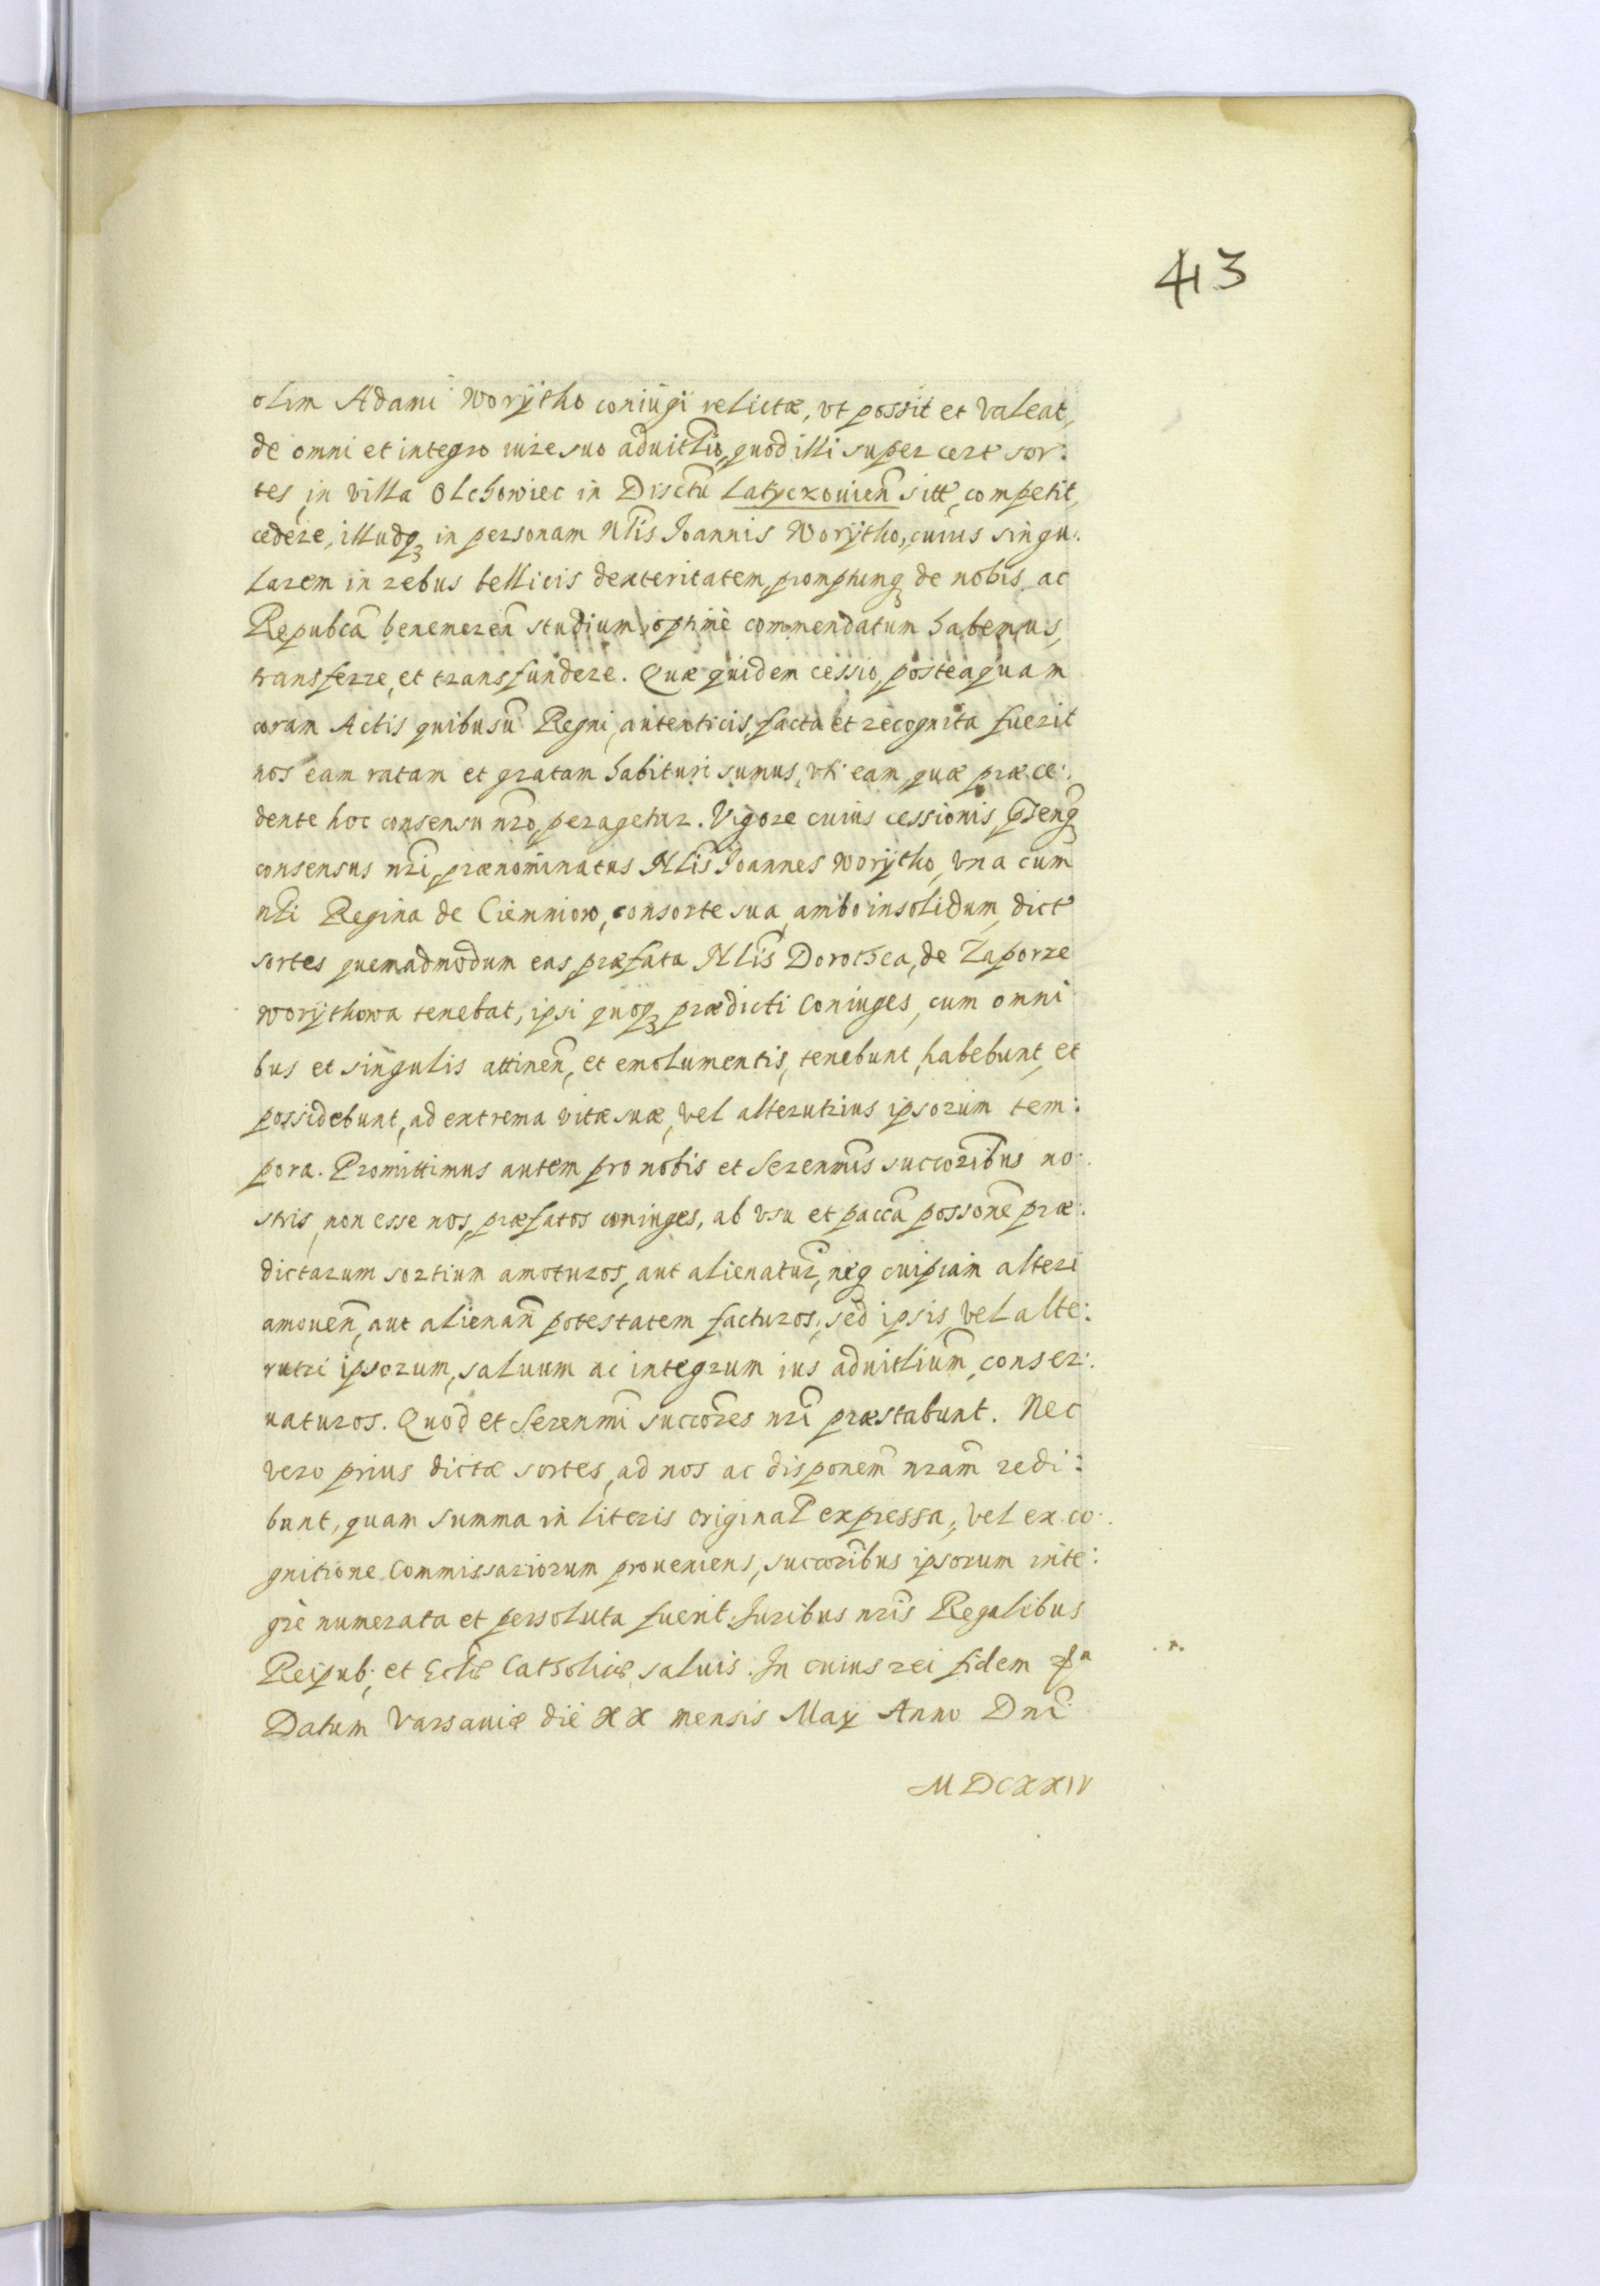 43
olim Adami Worÿtho coniugi relictæ, vt possit et valeat,
de omni et integro iure suo aduitlio, quod illi super cert sor:
tes in villa Olchowiec in Disctũ Latyczouien̄ sitt, competit,
cedere, illudq̃ in personam Nlĩs Joannis Worÿtho, cuius singu:
larem in rebus bellicis dexteritatem, promptumq̃ de nobis ac
Repubcã benemeren̄ studium, optimè commendatum habemus,
transferre, et transfundere. Quæ quidem cessio, posteaquam
coram Actis quibusũ Regni, autenticis, facta et recognita fuerit
nos eam ratam et gratam habituri sumus, vti eam, quæ præce:
dente hoc consensu nr̃o, peragetur. Vigore cuius cessionis, p̃senq̃
consensus nr̃i, prænominatus Nlĩs Joannes Worÿtho, vna cum
nlĩ Regina de Ciemniow, consorte sua, ambo insolidum, dict
sortes quemadmodum eas præfata Nlĩs Dorothea, de Zaporze
Worÿthowa tenebat, ipsi quoq̃ prædicti Coniuges, cum omni
bus et singulis attinen̄, et emolumentis, tenebunt, habebunt, et
possidebunt, ad extrema vitæ suæ, vel alterutrius ipsorum tem:
pora. Promittimus autem pro nobis et Serenmĩs succorĩbus no:
stris, non esse nos, præfatos coniuges, ab vsu et paccã possonẽ præ:
dictarum sortium amoturos, aut alienatur̃, neq̃ cuipiam alteri
amouen̄, aut alienan̄ potestatem facturos, sed ipsis, vel alte:
rutri ipsorum, saluum ac integrum ius aduitliũm, conser:
uaturos. Quod et Serenmĩ succorẽs nr̃i præstabunt. Nec
vero prius dictæ sortes, ad nos ac disponem̃ nram̃ redi:
bunt, quam summa in literis original expressa, vel ex co:
gnitione Commissariorum proueniens, succorĩbus ipsorum inte:
grè numerata et persoluta fuerit. Juribus nrĩs Regalibus
Reipub: et Eclĩæ Catholicæ, saluis. In cuius rei fidem
Datum Varsauiæ die XX mensis Maÿ Anno Dnĩ
MDCXXIV